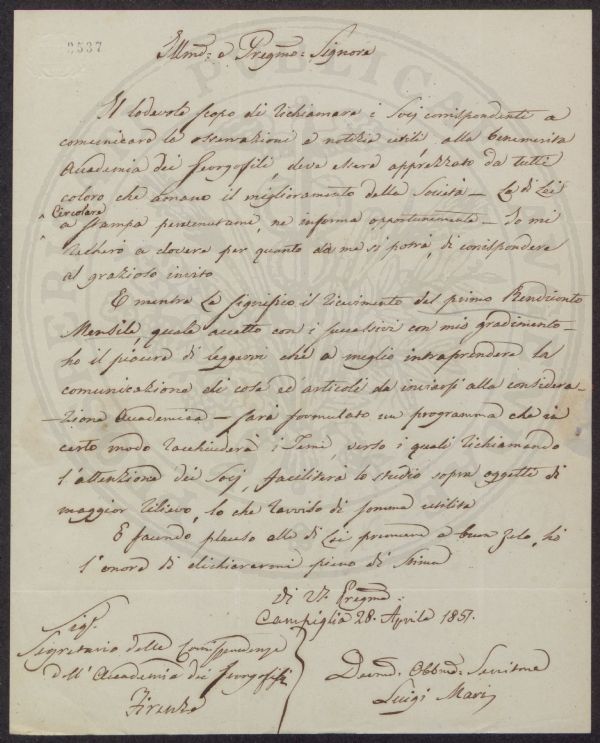 3537
Illmo: e Pregmo: Signore
Il lodevole scopo di richiamare i Socj corrispondenti a
comunicare le osservazioni e notizie utili, alla benemerita
Accademia dei Georgofili, deve essere apprezzato da tutti
coloro che amano il miglioramento della Società — La di Lei
Circolare
a stampa pervenutami, ne informa opportunamente — Io mi
recherò a dovere per quanto da me si potrà, di corrispondere
al grazioso invito
E mentre Le significo il ricevimento del primo Rendiconto
Mensile, quale accetto con i successivi con mio gradimento —
ho il piacere di leggervi che a meglio intraprendere la
comunicazione di cose ed articoli da inviarsi alla considera-
-zione Accademica — sarà formulato un programma che in
certo modo racchiuderà i Temi, verso i quali richiamando
l'attenzione dei Socj, faciliterà lo studio sopra oggetti di
maggior rilievo, lo che ravviso di somma utilità
E facendo plauso alle di Lei premure e buon zelo, ho
l'onore di dichiararmi pieno di Stima
Di VS. Pregma:
Campiglia 28. Aprile 1857.
Sigr.
Segretario delle Corrispondenze
dell'Accademia dei Georgofili
Firenze
Devmo. Obbmo. Servitore
Luigi Mari